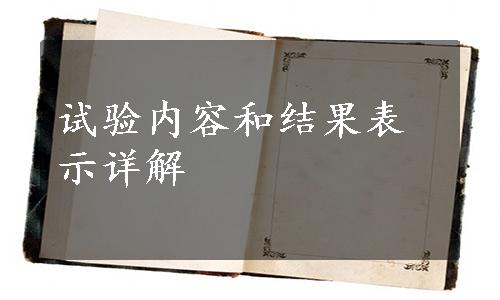 试验内容和结果表
示详解